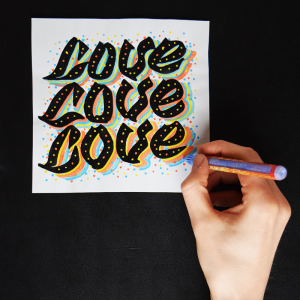 Love
Love
Love